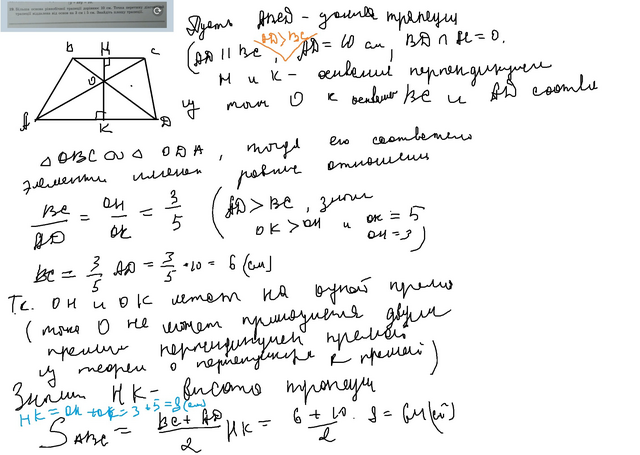 Пусть ABCD - данная трапеция
AD > BC
(AD || BC, AD = 10 см, BD ∩ AC = O.
H и K - основания перпендикуляров
из точки O к основаниям BC и AD соотв
B H C
O
A K D
△ OBC ∾ △ ODA, тогда его соответств
элементы имеют равные отношения
BC/AD = OH/OK = 3/5 (AD > BC, значит
OK > OH и OK = 5
OH = 3)
BC = 3/5 AD = 3/5 · 10 = 6 (см)
Т.к. OH и OK лежат на одной прямой
(точка O не может принадлежать двум
прямым перпендикулярен прямой
из теоремы о перпендикуляре к прямой)
Значит HK - высота трапеции
HK = OH + OK = 3 + 5 = 8 (см)
S ABC = BC + AD / 2 HK = 6 + 10 / 2 · 8 = 64 (см²)